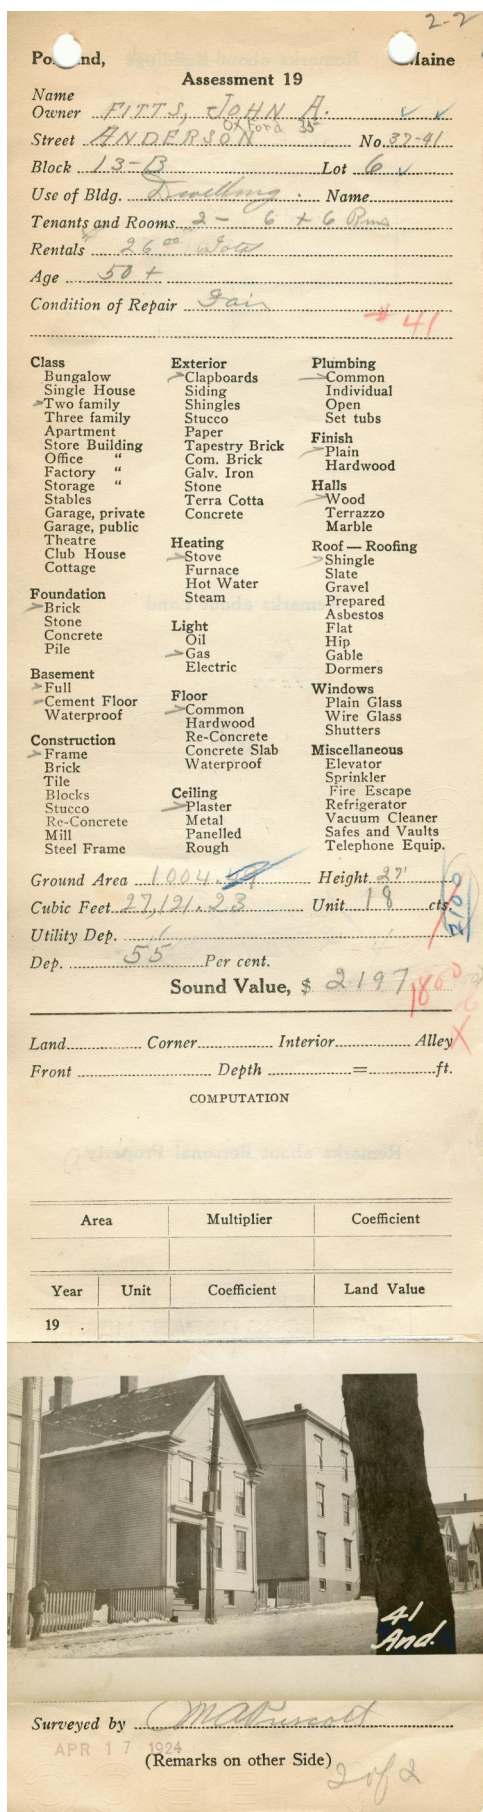 2-2
Po nd, Maine
Assessment 19
Name
Owner FITTS, JOHN A.
Oxford 35
Street ANDERSON No. 37-41
Block 13-B Lot 6
Use of Bldg. Dwelling. Name
Tenants and Rooms 2 - 6 + 6 Rms
Rentals 26 00 Total
Age 50 +
Condition of Repair Fair
# 41
Class
Bungalow
Single House
Two family
Three family
Apartment
Store Building
Office "
Factory "
Storage "
Stables
Garage, private
Garage, public
Theatre
Club House
Cottage
Foundation
Brick
Stone
Concrete
Pile
Basement
Full
Cement Floor
Waterproof
Construction
Frame
Brick
Tile
Blocks
Stucco
Re-Concrete
Mill
Steel Frame
Exterior
Clapboards
Siding
Shingles
Stucco
Paper
Tapestry Brick
Com. Brick
Galv. Iron
Stone
Terra Cotta
Concrete
Heating
Stove
Furnace
Hot Water
Steam
Light
Oil
Gas
Electric
Floor
Common
Hardwood
Re-Concrete
Concrete Slab
Waterproof
Ceiling
Plaster
Metal
Panelled
Rough
Plumbing
Common
Individual
Open
Set tubs
Finish
Plain
Hardwood
Halls
Wood
Terrazzo
Marble
Roof — Roofing
Shingle
Slate
Gravel
Prepared
Asbestos
Flat
Hip
Gable
Dormers
Windows
Plain Glass
Wire Glass
Shutters
Miscellaneous
Elevator
Sprinkler
Fire Escape
Refrigerator
Vacuum Cleaner
Safes and Vaults
Telephone Equip.
Ground Area 1004. Height 27'
Cubic Feet 27,121.23 Unit 18 cts.
2100
Utility Dep.
Dep. 55 Per cent.
Sound Value, $ 2197
Land Corner Interior Alley
Front Depth = ft.
COMPUTATION
Area Multiplier Coefficient
Year Unit Coefficient Land Value
19 .
41
And.
Surveyed by
APR 17 1924
(Remarks on other Side)
2 of 2